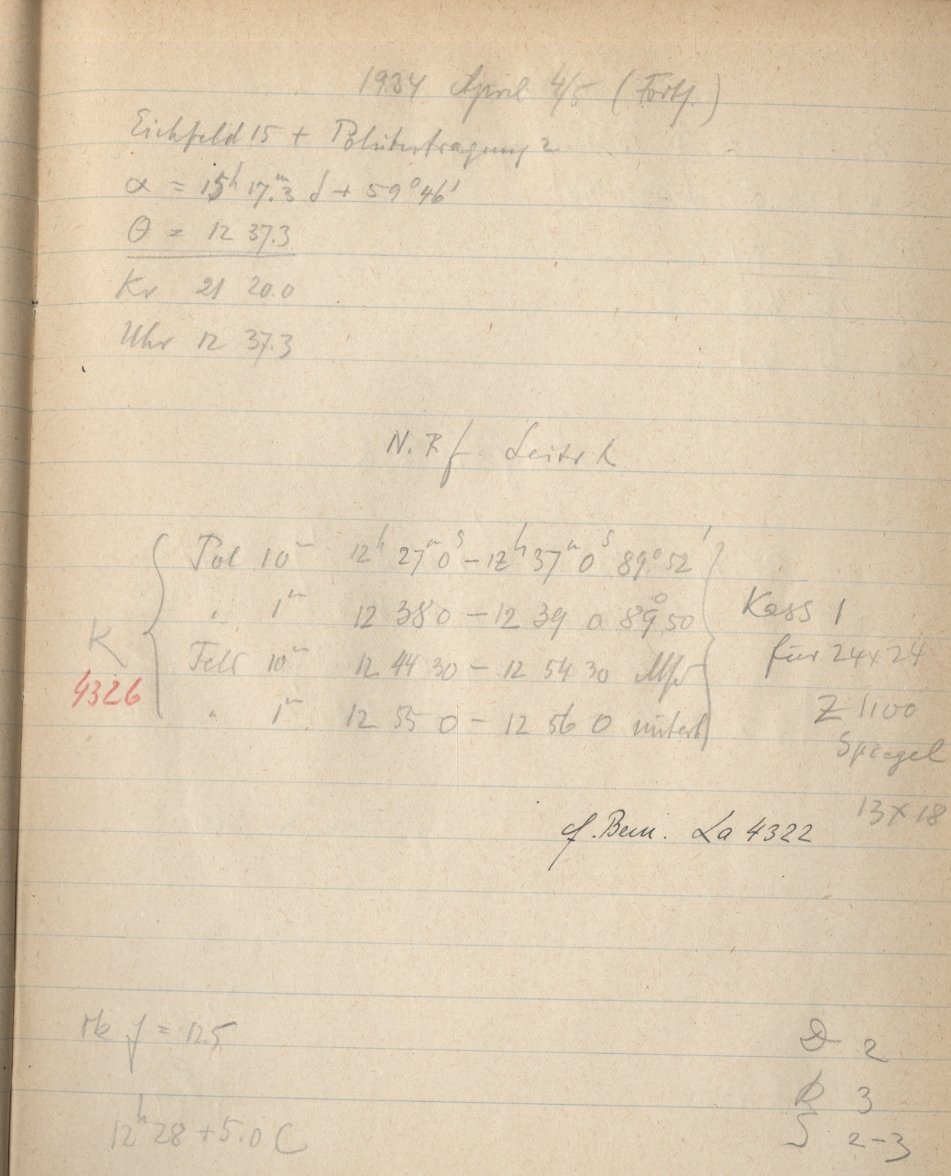 1934 April 4/5 (Forts.)
Eichfeld 15 + Polübertragung 2
α = 15h 17.m3 δ + 59° 46'
θ = 12 37.3
Kr 21 20.0
Uhr 12 37.3
N. R f.
Pol 10m 12h 27m 0s – 12h 37m 0s 89° 52'
„ 1m 12 38 0 – 12 39 0 89° 50
K Feld 10m 12 44 30 – 12 54 30
4326 „ 1m 12 55 0 – 12 56 0
Kass 1
für 24x24
Z 1100
Spiegel
13 x 18
cf. Bem. La 4322
f = 12.5
12h 28 + 5.0 C
D 2
R 3
S 2–3